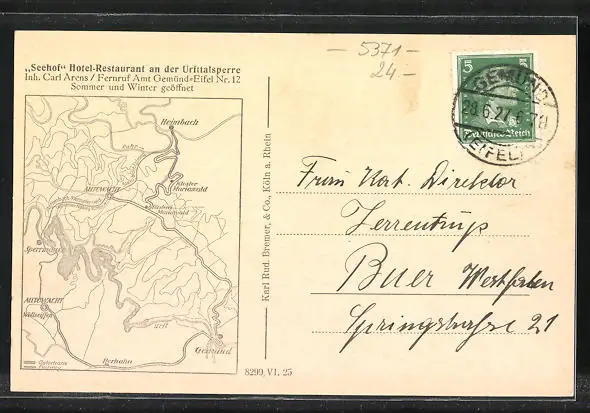 „Seehof" Hotel-Restaurant an der Urfttalsperre
Inh. Carl Arens / Fernruf Amt Gemünd=Eifel Nr. 12
Sommer und Winter geöffnet
Heimbach
Ruhr
Kloster
Mariawald
AUTOWACHT
Mariawald
Sperrmauer
AUTOWACHT
Urft
Gemünd
Herhahn
8299, VI. 25
Karl Rud. Bremer, & Co., Köln a. Rhein
— 5371 —
24.—
5
Deutsches Reich
GEMÜND
28.6.27.6-7N
(EIFEL)
Frau Kat. Direktor
Zerrentrup
Buer Westfalen
Springstrasse 21